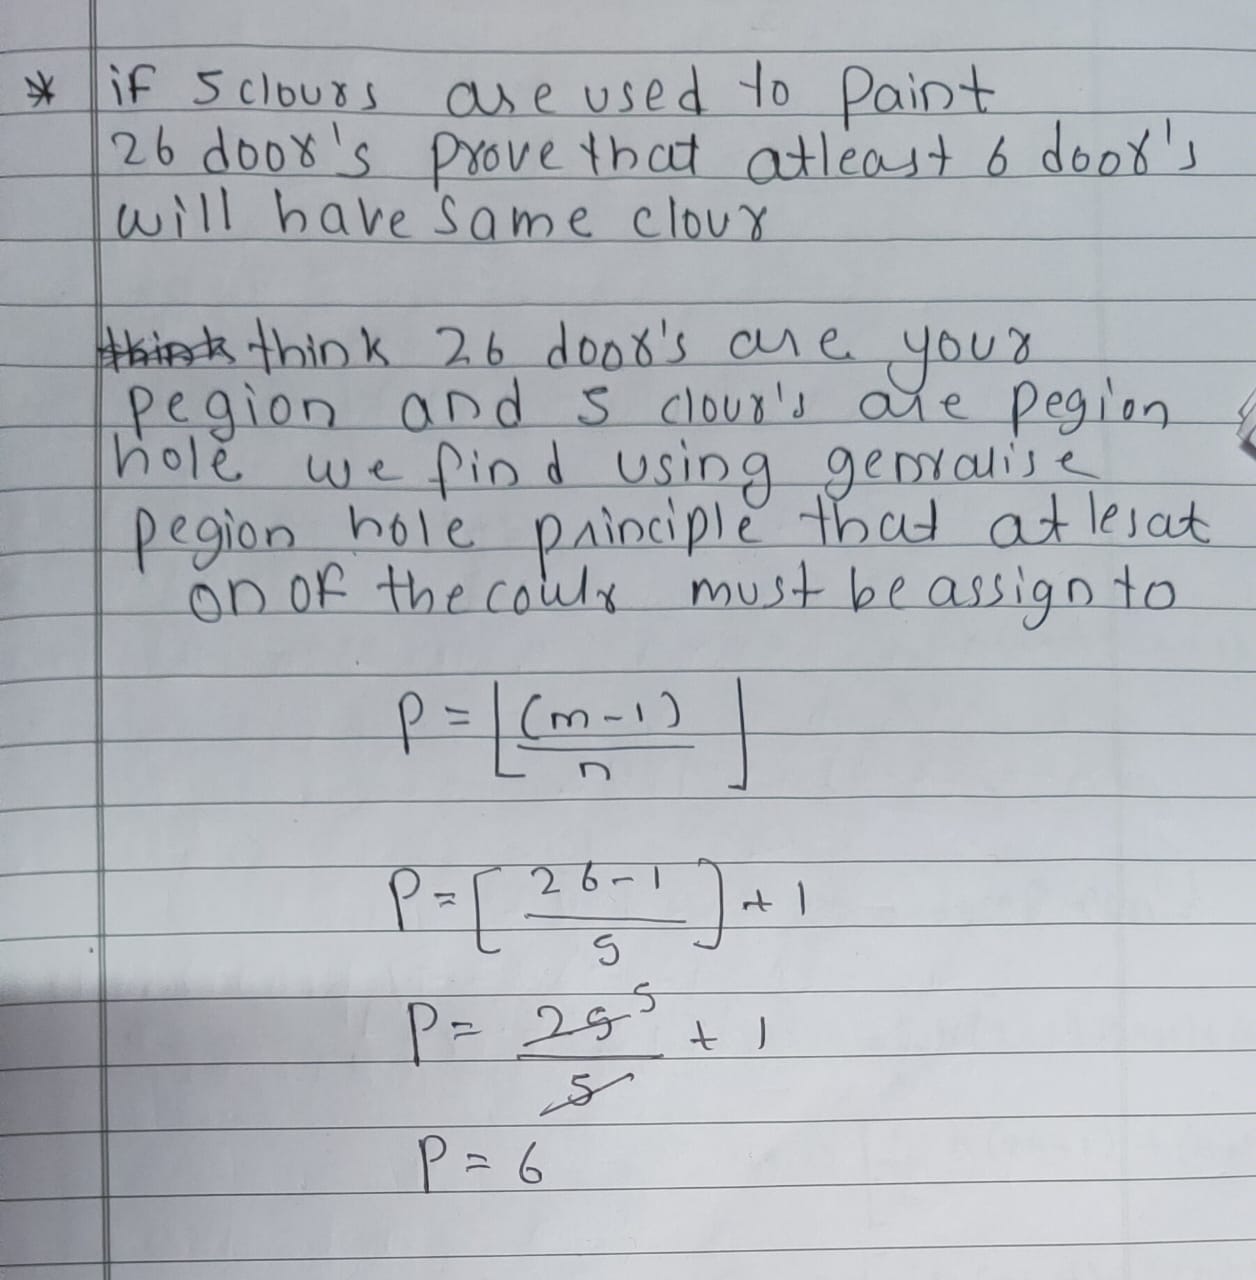 * if 5 clours are used to Paint
26 door's prove that atleast 6 door's
will have same clour
think think 26 door's are your
pegion and 5 clour's are pegion
hole we find using genralise
pegion hole principle that at lesat
on of the coulr must be assign to
P = ⌊(m-1)/n⌋
P = [26-1/5] + 1
P = 25/5 5 + 1
P = 6